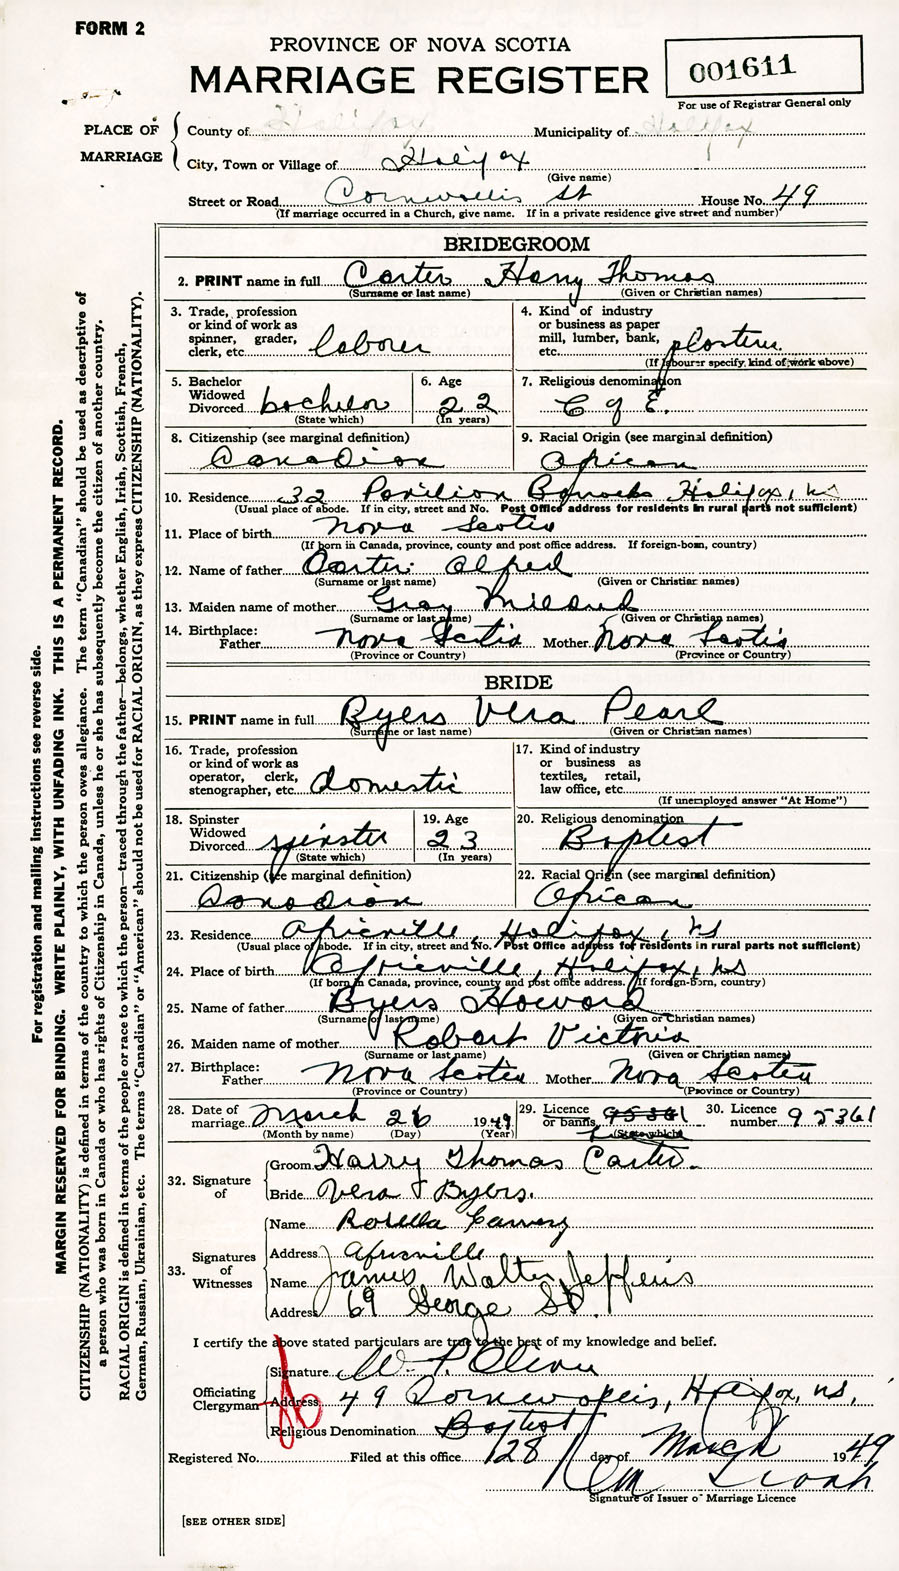 FORM 2
PROVINCE OF NOVA SCOTIA
MARRIAGE REGISTER
001611
For use of Registrar General only
PLACE OF MARRIAGE
County of Halifax Municipality of Halifax
City, Town or Village of Halifax
(Give name)
Street or Road Cornwallis St House No. 49
(If marriage occurred in a Church, give name. If in a private residence give street and number)
BRIDEGROOM
2. PRINT name in full Carter Harry Thomas
(Surname or last name) (Given or Christian names)
3. Trade, profession or kind of work as spinner, grader, clerk, etc. laborer
4. Kind of industry or business as paper mill, lumber, bank, etc.
(If labourer specify kind of work above)
5. Bachelor Widowed Divorced bachelor
(State which)
6. Age 22
(In years)
7. Religious denomination C of E.
8. Citizenship (see marginal definition) Canadian
9. Racial Origin (see marginal definition) African
10. Residence 32 Pavilion Barracks Halifax, NS
(Usual place of abode. If in city, street and No. Post Office address for residents in rural parts not sufficient)
11. Place of birth Nova Scotia
(If born in Canada, province, county and post office address. If foreign-born, country)
12. Name of father Carter Alfred
(Surname or last name) (Given or Christian names)
13. Maiden name of mother Gray Mildred
(Surname or last name) (Given or Christian names)
14. Birthplace: Father Nova Scotia Mother Nova Scotia
(Province or Country) (Province or Country)
BRIDE
15. PRINT name in full Byers Vera Pearl
(Surname or last name) (Given or Christian names)
16. Trade, profession or kind of work as operator, clerk, stenographer, etc. domestic
17. Kind of industry or business as textiles, retail, law office, etc.
(If unemployed answer "At Home")
18. Spinster Widowed Divorced spinster
(State which)
19. Age 23
(In years)
20. Religious denomination Baptist
21. Citizenship (see marginal definition) Canadian
22. Racial Origin (see marginal definition) African
23. Residence Africville, Halifax, NS
(Usual place of abode. If in city, street and No. Post Office address for residents in rural parts not sufficient)
24. Place of birth Africville, Halifax, NS
(If born in Canada, province, county and post office address. If foreign-born, country)
25. Name of father Byers Howard
(Surname or last name) (Given or Christian names)
26. Maiden name of mother Robart Victoria
(Surname or last name) (Given or Christian names)
27. Birthplace: Father Nova Scotia Mother Nova Scotia
(Province or Country) (Province or Country)
28. Date of marriage March 26 1949
(Month by name) (Day) (Year)
29. Licence or banns 95361
(State which)
30. Licence number 95361
32. Signature of
Groom Harry Thomas Carter.
Bride Vera Byers.
33. Signatures of Witnesses
Name Rosella
Address Africville
Name James Walter
Address 69 George St.
I certify the above stated particulars are true to the best of my knowledge and belief.
Officiating Clergyman
Signature W. P. Oliver
Address 49 Cornwallis, Halifax, NS,
Religious Denomination Baptist
Registered No. Filed at this office 128 day of March 1949
Signature of Issuer of Marriage Licence
[SEE OTHER SIDE]
For registration and mailing instructions see reverse side.
MARGIN RESERVED FOR BINDING. WRITE PLAINLY, WITH UNFADING INK. THIS IS A PERMANENT RECORD.
CITIZENSHIP (NATIONALITY) is defined in terms of the country to which the person owes allegiance. The term "Canadian" should be used as descriptive of
a person who was born in Canada or who has rights of Citizenship in Canada, unless he or she has subsequently become the citizen of another country.
RACIAL ORIGIN is defined in terms of the people or race to which the person—traced through the father—belongs, whether English, Irish, Scottish, French,
German, Russian, Ukrainian, etc. The terms "Canadian" or "American" should not be used for RACIAL ORIGIN, as they express CITIZENSHIP (NATIONALITY).